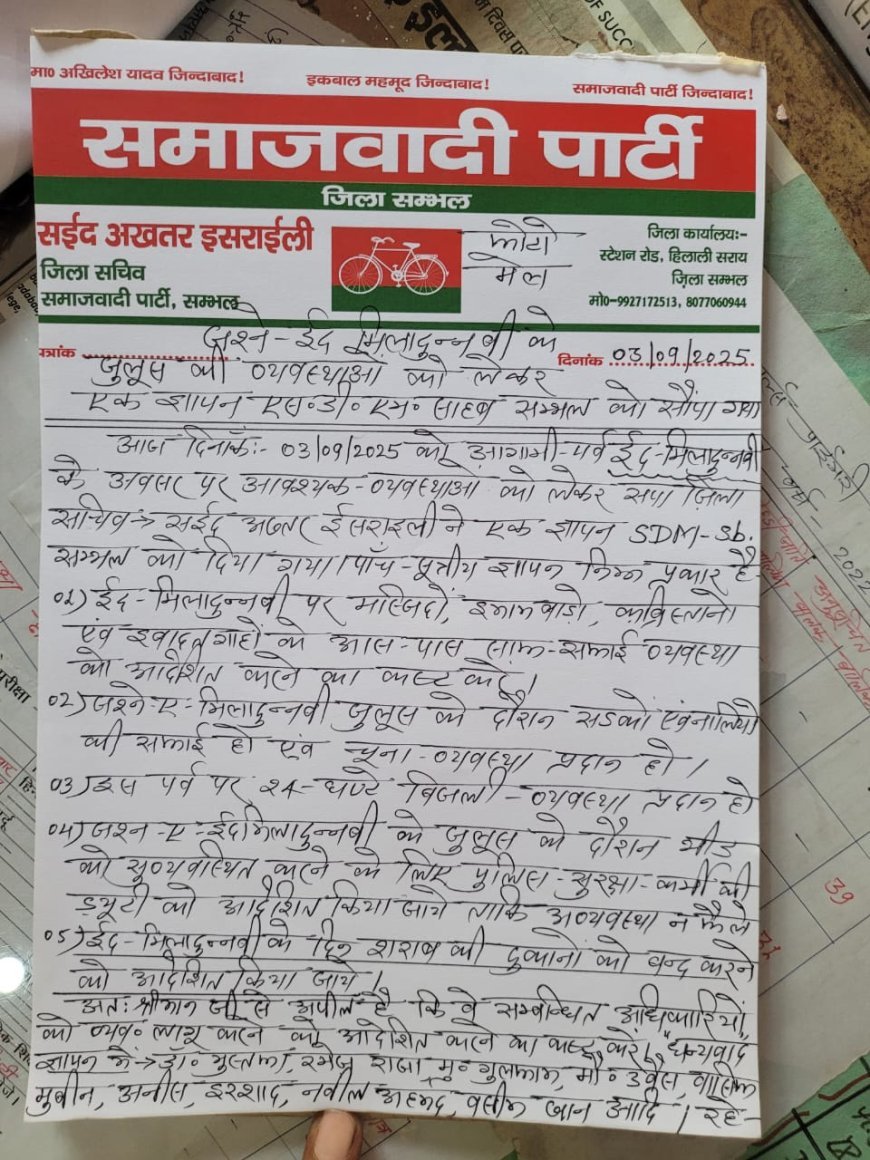 मा0 अखिलेश यादव जिन्दाबाद! इकबाल महमूद जिन्दाबाद! समाजवादी पार्टी जिन्दाबाद!
समाजवादी पार्टी
जिला सम्भल
सईद अखतर इसराईली
जिला सचिव
समाजवादी पार्टी, सम्भल
फोटो
मेल
जिला कार्यालयः-
स्टेशन रोड, हिलाली सराय
ज़िला सम्भल
मो0-9927172513, 8077060944
पत्रांक दिनांक 03/09/2025
जश्ने-ईद मिलादुन्नबी के
जुलूस की व्यवस्थाओं को लेकर
एक ज्ञापन एस०डी०एम० साहब सम्भल को सौंपा गया
आज दिनाँकः- 03/09/2025 को आगामी-पर्व ईद-मिलादुन्नबी
के अवसर पर आवश्यक-व्यवस्थाओं को लेकर सपा ज़िला
सचिव→ सईद अख्तर ईसराइली ने एक ज्ञापन SDM-Sb.
सम्भल को दिया गया। पाँच-सूत्रीय ज्ञापन निम्न प्रकार है
01) ईद-मिलादुन्नबी पर मस्जिदों, इमामबाड़ो, कब्रिस्तानो
एंव इबादतगाहों के आस-पास साफ-सफाई व्यवस्था
को आदेशित करने का कष्ट करें।
02) जश्ने-ए-मिलादुन्नबी जुलूस के दौरान सडकों एंव नालियो
की सफाई हो एंव चूना-व्यवस्था प्रदान हो।
03) इस पर्व पर 24-घण्टे बिजली-व्यवस्था प्रदान हो
04) जश्न-ए-ईदमिलादुन्नबी के जुलूस के दौरान भीड
को सुव्यवस्थित करने के लिए पुलिस-सुरक्षा-कर्मी की
ड्यूटी को आदेशित किया जाये ताकि अव्यवस्था न फैले
05) ईद-मिलादुन्नबी के दिन शराब की दुकानों को बन्द करने
को आदेशित किया जाये।
अतः श्रीमान जी से अपील है कि वे सम्बन्धित अधिकारियों
को व्यव० लागू करने को आदेशित करने का कष्ट करें। "धन्यवाद"
ज्ञापन में→ डा० मुस्तफा, राजा, मु० गुलफाम, मौ० उवैस, वासिम
मुबीन, अनीस, इरशाद, नवील अहमद, वसीम खान आदि। रहे-